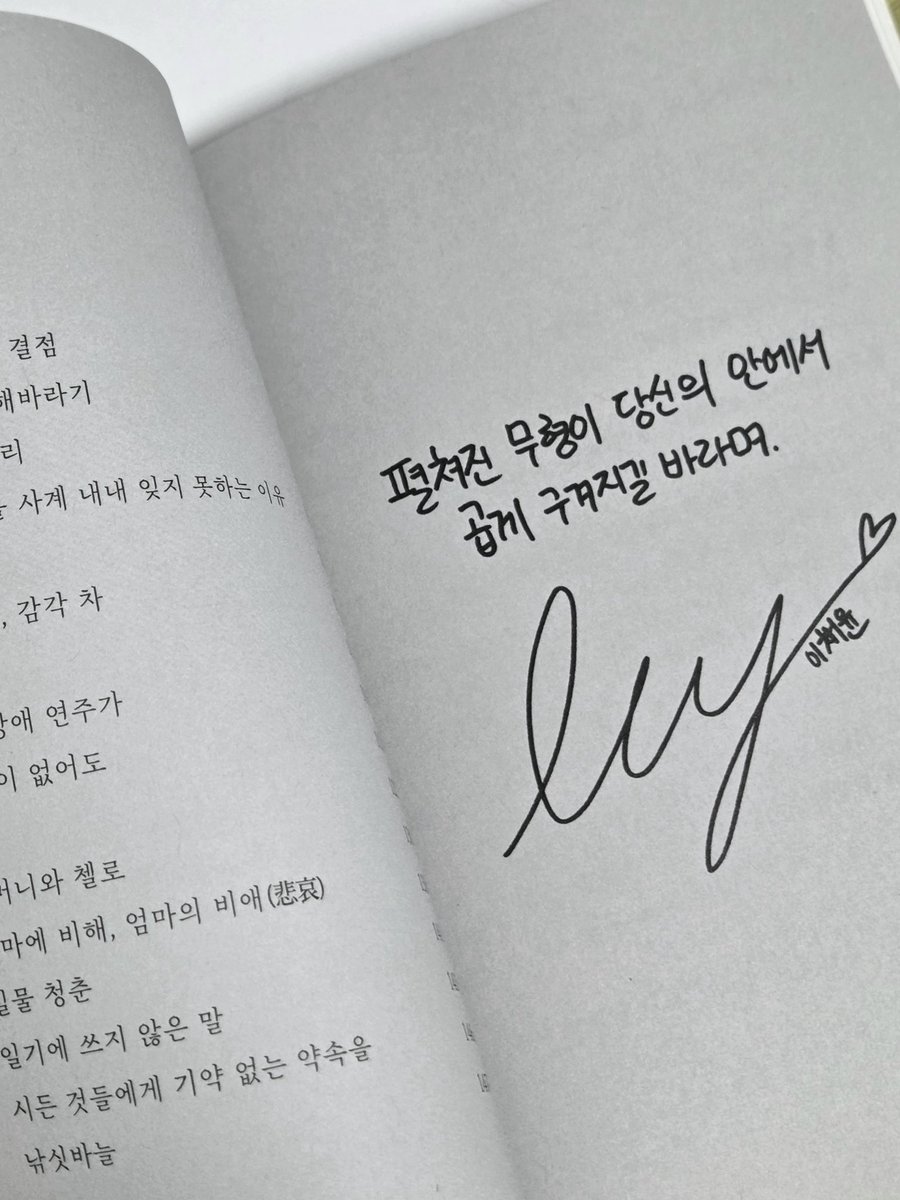 결점
해바라기
리
사계 내내 잊지 못하는 이유
, 감각 차
애 연주가
이 없어도
머니와 첼로
마에 비해, 엄마의 비애(悲哀)
물 청춘
일기에 쓰지 않은 말
시든 것들에게 기약 없는 약속을
낚싯바늘
펼쳐진 무형이 당신의 안에서
곱게 구겨지길 바라며.
lcy
이채윤